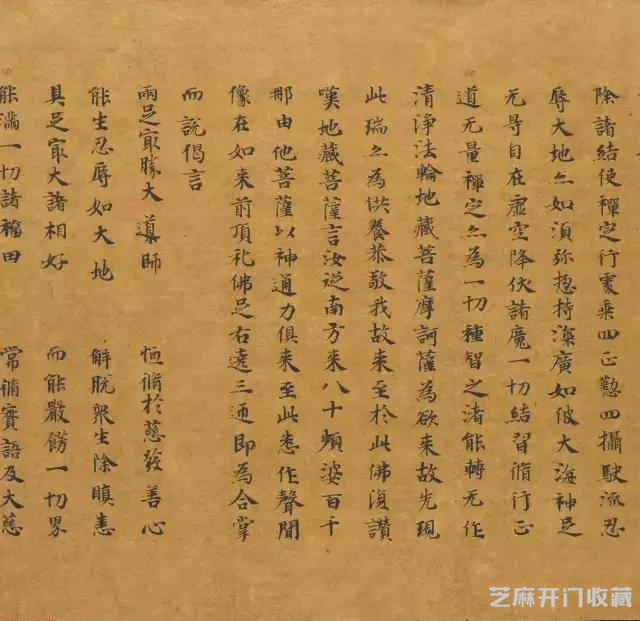 除諸結使禪定行處乘四正懃四攝駛流忍
辱大地亦如須弥揔持深廣如彼大海神足
无导自在虛空降伏諸魔一切結習脩行正
道无量禪定亦為一切種智之渚能轉无作
清淨法輪地藏菩薩摩訶薩為欲來故先現
此瑞亦為供養恭敬我故来至於此佛復讃
嘆地藏菩薩言汝從南方来八十頻婆百千
那由他菩薩以神通力俱来至此悉作聲聞
像在如来前頂礼佛足右遶三通即為合掌
而說偈言
兩足㝡勝大導師 恒脩於慈發善心
能生忍辱如大地 解脫衆生除瞋恚
具足㝡大諸相好 而能嚴餝一切界
能滿一切諸福田 常脩實語及大慈
60
50
芝麻开门收藏